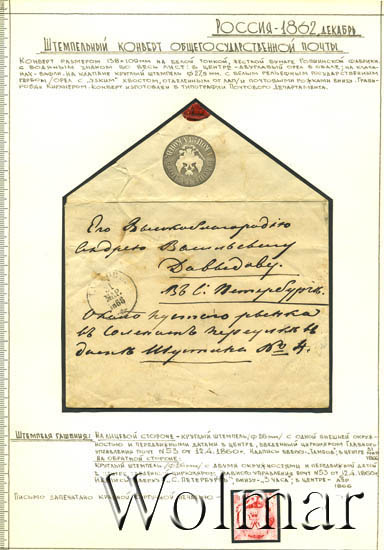 РОССИЯ-1862, ДЕКАБРЬ
ШТЕМПЕЛЬНЫЙ КОНВЕРТ ОБЩЕГОСУДАРСТВЕННОЙ ПОЧТЫ.
КОНВЕРТ РАЗМЕРОМ 138×109мм НА БЕЛОЙ ТОНКОЙ, ЖЕСТКОЙ БУМАГЕ ФАБРИКИ
С ВОДЯНЫМ ЗНАКОМ ВО ВЕСЬ ЛИСТ: В ЦЕНТРЕ - ДВУГЛАВЫЙ ОРЕЛ В ОВАЛЕ; НА КЛАПА-
НАХ- НА КЛАПАНЕ КРУГЛЫЙ ШТЕМПЕЛЬ С БЕЛЫМ РЕЛЬЕФНЫМ ГОСУДАРСТВЕННЫМ
ГЕРБОМ /ОРЕЛ С "УЗКИМ" ХВОСТОМ, ОТДЕЛЕННЫМ ОТ ЛАП/ И ПОЧТОВЫМИ РОЖКАМИ ВНИЗУ. ГРАВИ-
РОВАН КИРХНЕРОМ. КОНВЕРТ ИЗГОТОВЛЕН В ТИПОГРАФИИ ПОЧТОВОГО ДЕПАРТАМЕНТА.
Его Высокоблагородію
Андрею Васильевичу
Давыдову.
Въ С. Петербургѣ.
Около пустого рынка
въ переулкѣ въ
домѣ Шустика № 4.
1866
ШТЕМПЕЛЯ ГАШЕНИЯ: НА ЛИЦЕВОЙ СТОРОНЕ - КРУГЛЫЙ ШТЕМПЕЛЬ /Ф26мм/ С ОДНОЙ ВНЕШНЕЙ ОКРУЖ-
НОСТЬЮ И ПЕРЕДВИЖНЫМИ ДАТАМИ В ЦЕНТРЕ, ВВЕДЕННЫЙ ЦИРКУЛЯРОМ ГЛАВНОГО
УПРАВЛЕНИЯ ПОЧТ №53 ОТ 12.4.1860г. НАДПИСИ ВВЕРХУ- В ЦЕНТРЕ
НА ОБРАТНОЙ СТОРОНЕ:
КРУГЛЫЙ ШТЕМПЕЛЬ С ДВУМЯ ОКРУЖНОСТЯМИ И ПЕРЕДВИЖНОЙ ДАТОЙ
В ЦЕНТРЕ, ЦИРКУЛЯРОМ ГЛАВНОГО УПРАВЛЕНИЯ ПОЧТ №53 ОТ 12.4.1860г.
НАДПИСИ ВВЕРХУ "С. ПЕТЕРБУРГЪ", ВНИЗУ - "3 ЧАСА", В ЦЕНТРЕ-
1866
ПИСЬМО ЗАПЕЧАТАНО КРАСНОЙ СУРГУЧНОЙ ПЕЧАТЬЮ
Wolmar